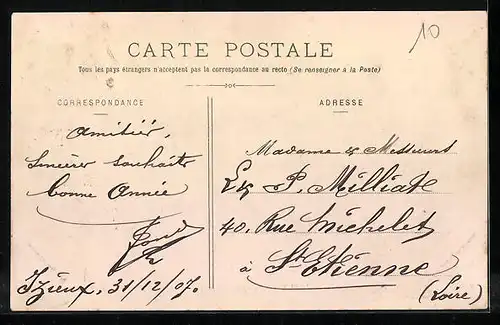 10
CARTE POSTALE
Tous les pays étrangers n'acceptent pas la correspondance au recto (Se renseigner à la Poste)
CORRESPONDANCE
ADRESSE
Amitiés,
Sincères souhaits
bonne Année
Izieux, 31/12/07.
Madame & Messieurs
P. Milliat
40. Rue Michelet
à St Etienne
(Loire)